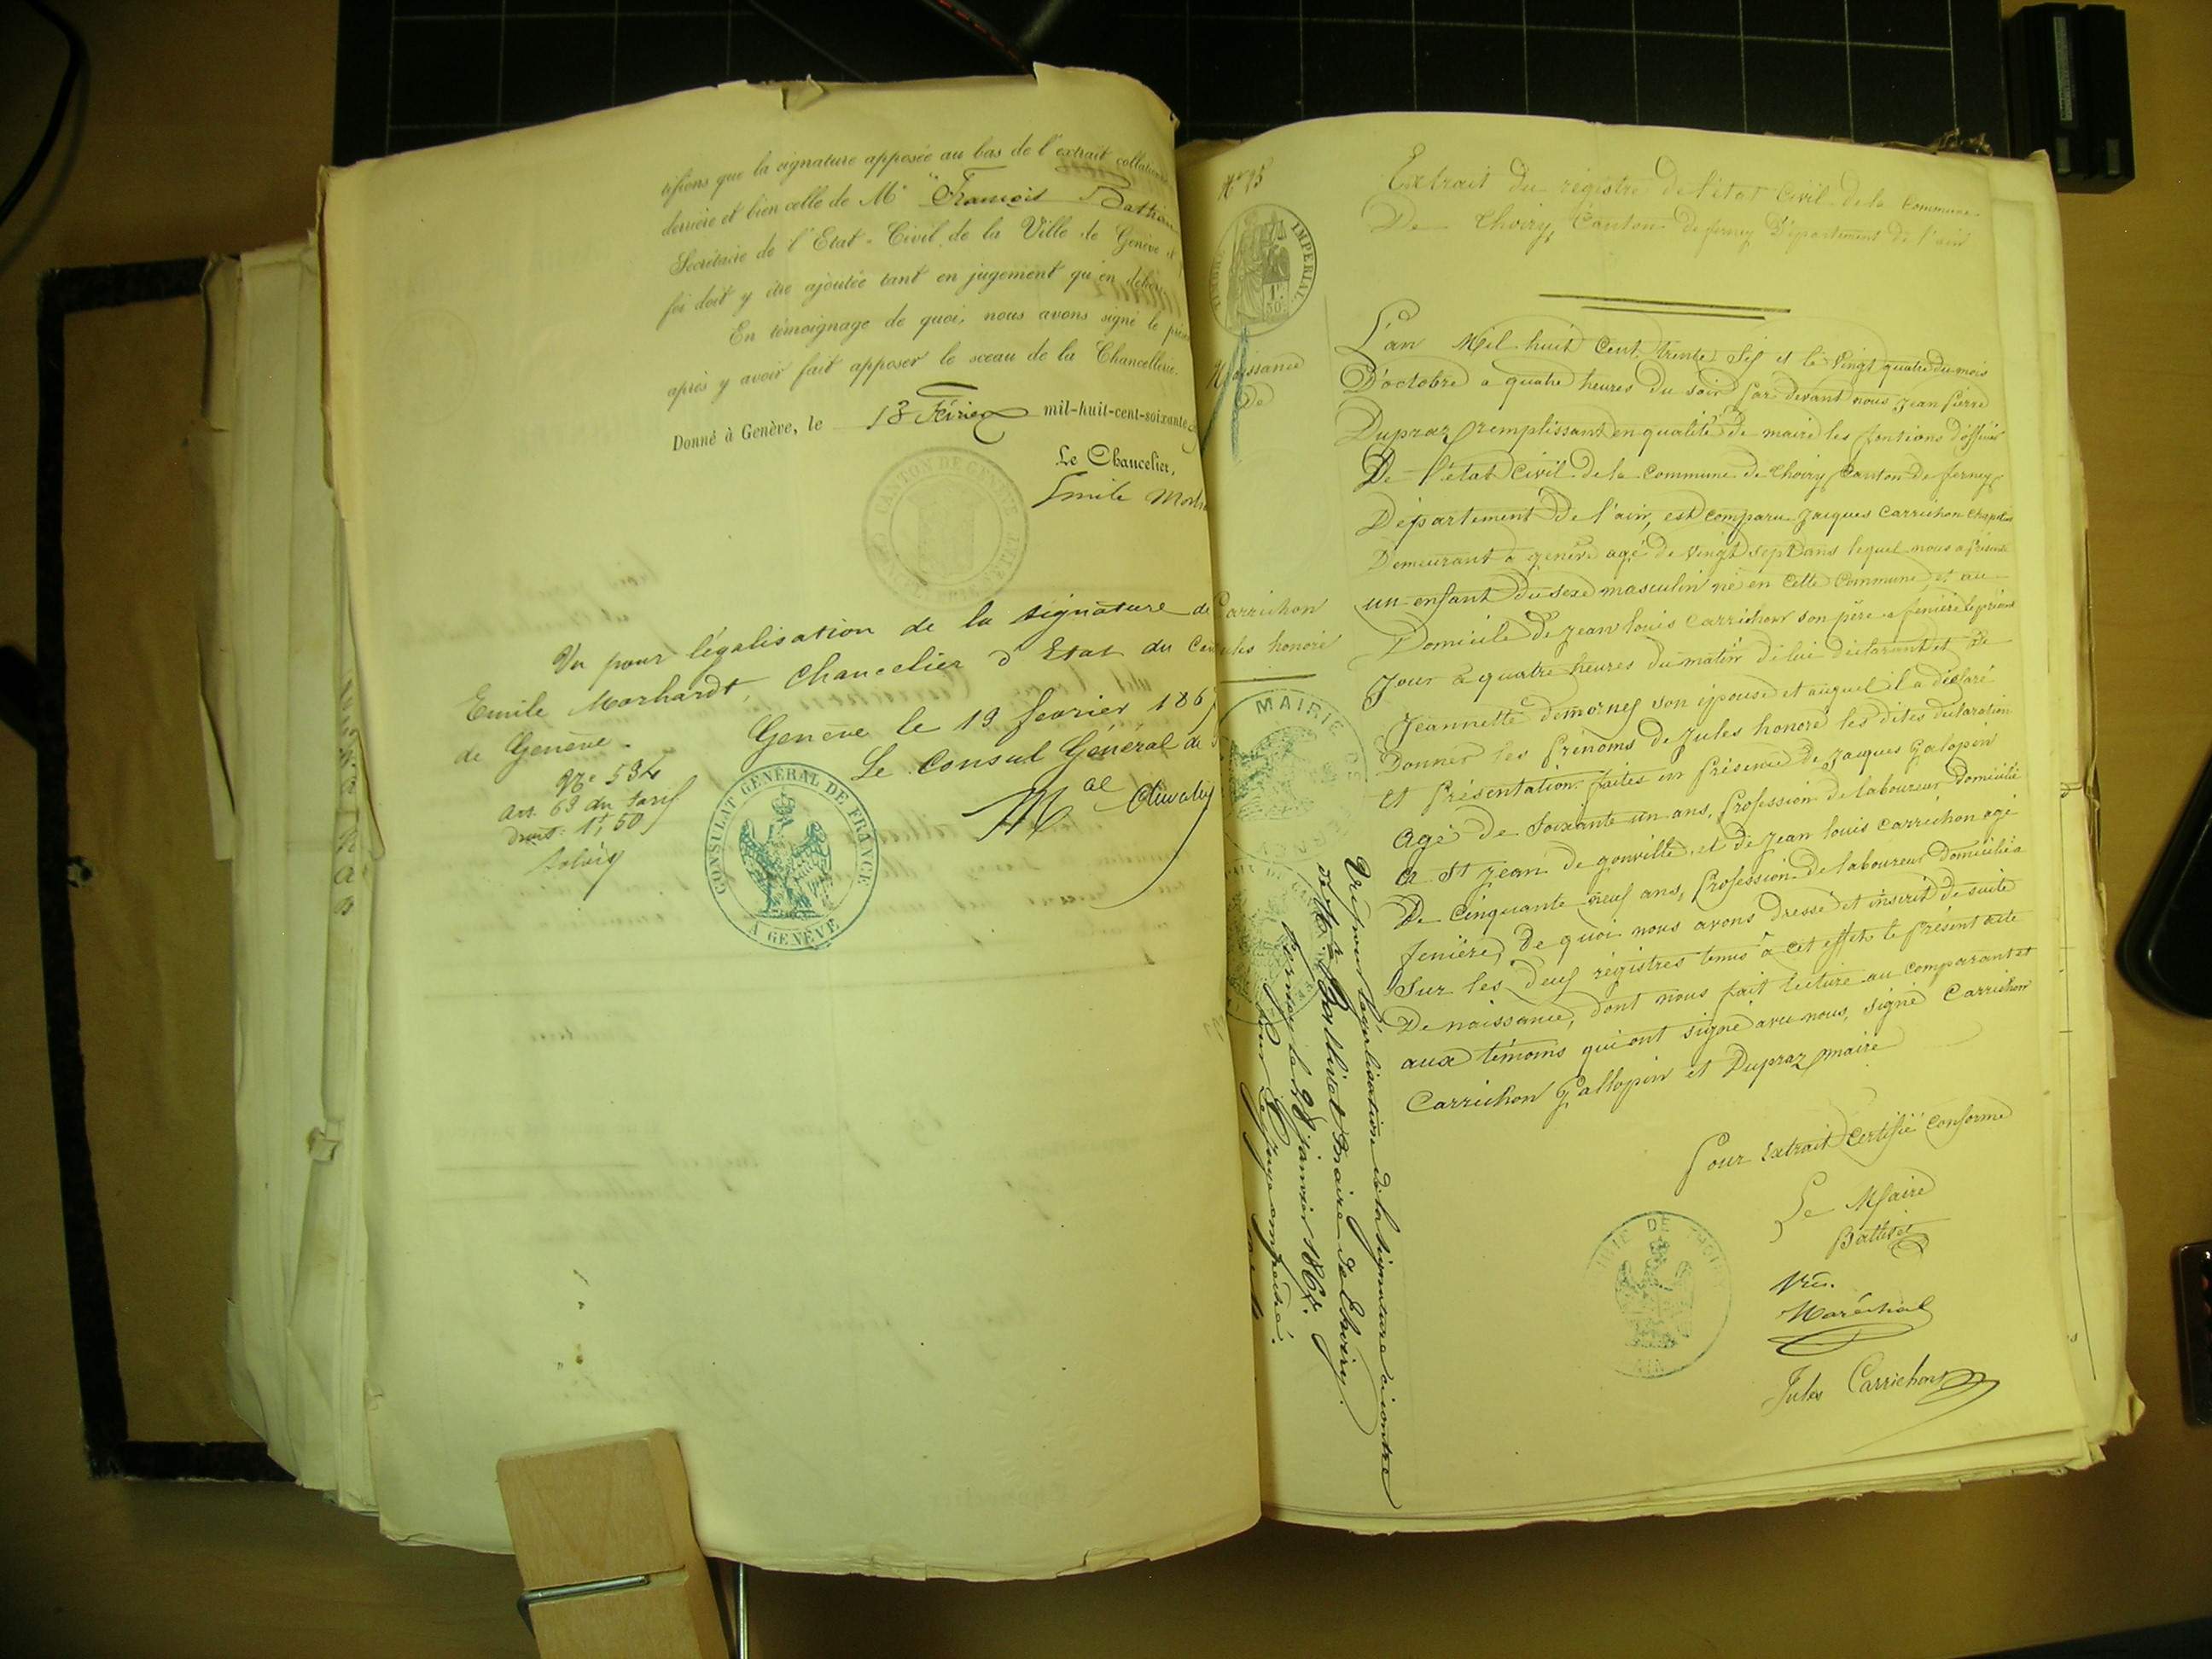 tifions que la signature apposée au bas de l'extrait
derrière et bien celle de Mr François
Secrétaire de l'Etat-Civil de la Ville de Genève et
foi doit y être ajoutée tant en jugement qu'en dehors
En témoignage de quoi, nous avons signé le
après y avoir fait apposer le sceau de la Chancellerie.
Donné à Genève, le 18 Février mil-huit-cent-soixante
Le Chancelier,
Emile
CANTON DE GENÈVE
Vu pour légalisation de la signature de
Emile Morhardt, Chancelier d'Etat du
de Genève.
Genève le 19 fevrier 186
Le Consul Général de
No 534
Art. 69 du tarif
droit: 1f 50
CONSULAT GÉNÉRAL DE FRANCE
A GENÈVE
No 95
TIMBRE IMPERIAL
1F
50c
Naissance
De
Carrichon
Jules honoré
MAIRIE DE
Extrait du régistre de l'état Civil de la Commune
De Thoiry, Canton de ferney Département de l'ain
L'an Mil huit Cent trente Six et le Vingt quatre du mois
D'octobre a quatre heures du soir par devant nous Jean pierre
Dupraz remplissant en qualité de maire les fontions d'officier
De l'état Civil de la Commune de Thoiry Canton de ferney
Département de l'ain, est Comparu Jacques Carrichon
Demeurant a genève agé de Vingt Sept ans lequel nous a présenté
un enfant du sexe masculin né en Cette Commune et au
Domicile de Jean louis Carrichon son père a fenière le présent
Jour a quatre heures du matin de lui déclarant et De
Jeannette son épouse et auquel il a déclaré
Donner les prénoms de Jules honoré les dites déclaration
et présentation faites en présence de Jacques Galopin
Agé de Soixante un ans, profession de laboureur domicilié
a St Jean de gonville, et de Jean louis Carrichon agé
De Cinquante neuf ans, profession de laboureur domicilié a
fenière, De quoi nous avons dressé et inscrit de suite
Sur les deux régistres tenus a Cet effet le présent acte
De naissance, dont nous fait lecture au comparant et
aux témoins qui ont signé avec nous, signé Carrichon
Carrichon Gallopin et Dupraz maire
Pour extrait Certifié Conforme
Le Maire
MAIRIE DE THOIRY
AIN
Maréchal
Jules Carrichon
Vu pour légalisation de la signature ci-contre
de Mr Maire de Thoiry.
Ferney le 28 janvier 1867.
Pour le Juge empêché.